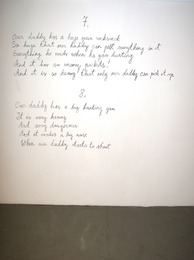 7.
Our daddy has a huge green rucksack
So huge that our daddy can put everything in it
Everything he needs when he goes hunting
And it has so many pockets!
And it is so heavy that only our daddy can pick it up
8.
Our daddy has a big hunting gun
It is very heavy
And very dangerous
And it makes a big noise
When our daddy starts to shoot